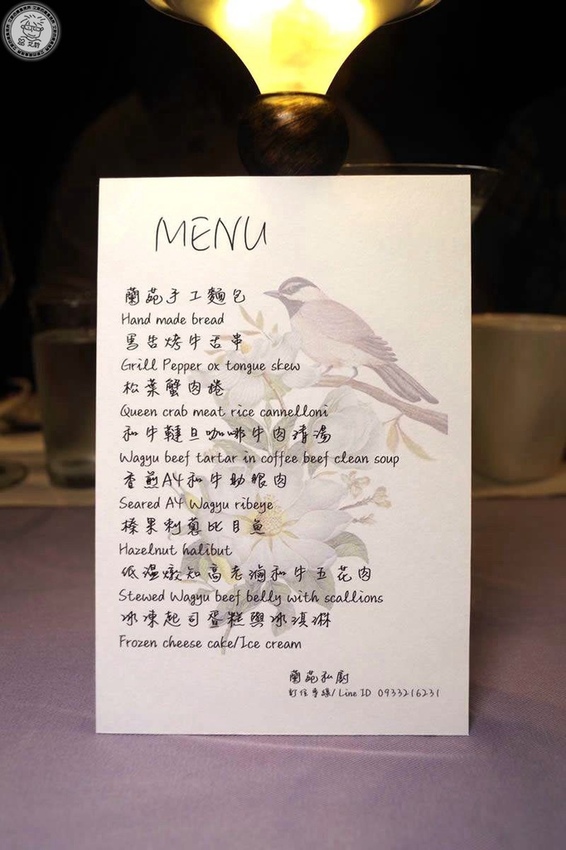 MENU
蘭苑手工麵包
Hand made bread
馬告烤牛舌串
Grill Pepper ox tongue skew
松葉蟹肉捲
Queen crab meat rice cannelloni
和牛韃旦咖啡牛肉清湯
Wagyu beef tartar in coffee beef clean soup
香煎A4和牛肋眼肉
Seared A4 Wagyu ribeye
榛果刺蔥比目魚
Hazelnut halibut
低溫燉知高老滷和牛五花肉
Stewed Wagyu beef belly with scallions
冰凍起司蛋糕與冰淇淋
Frozen cheese cake/Ice cream
蘭苑私廚
訂位專線/Line ID 0933216231